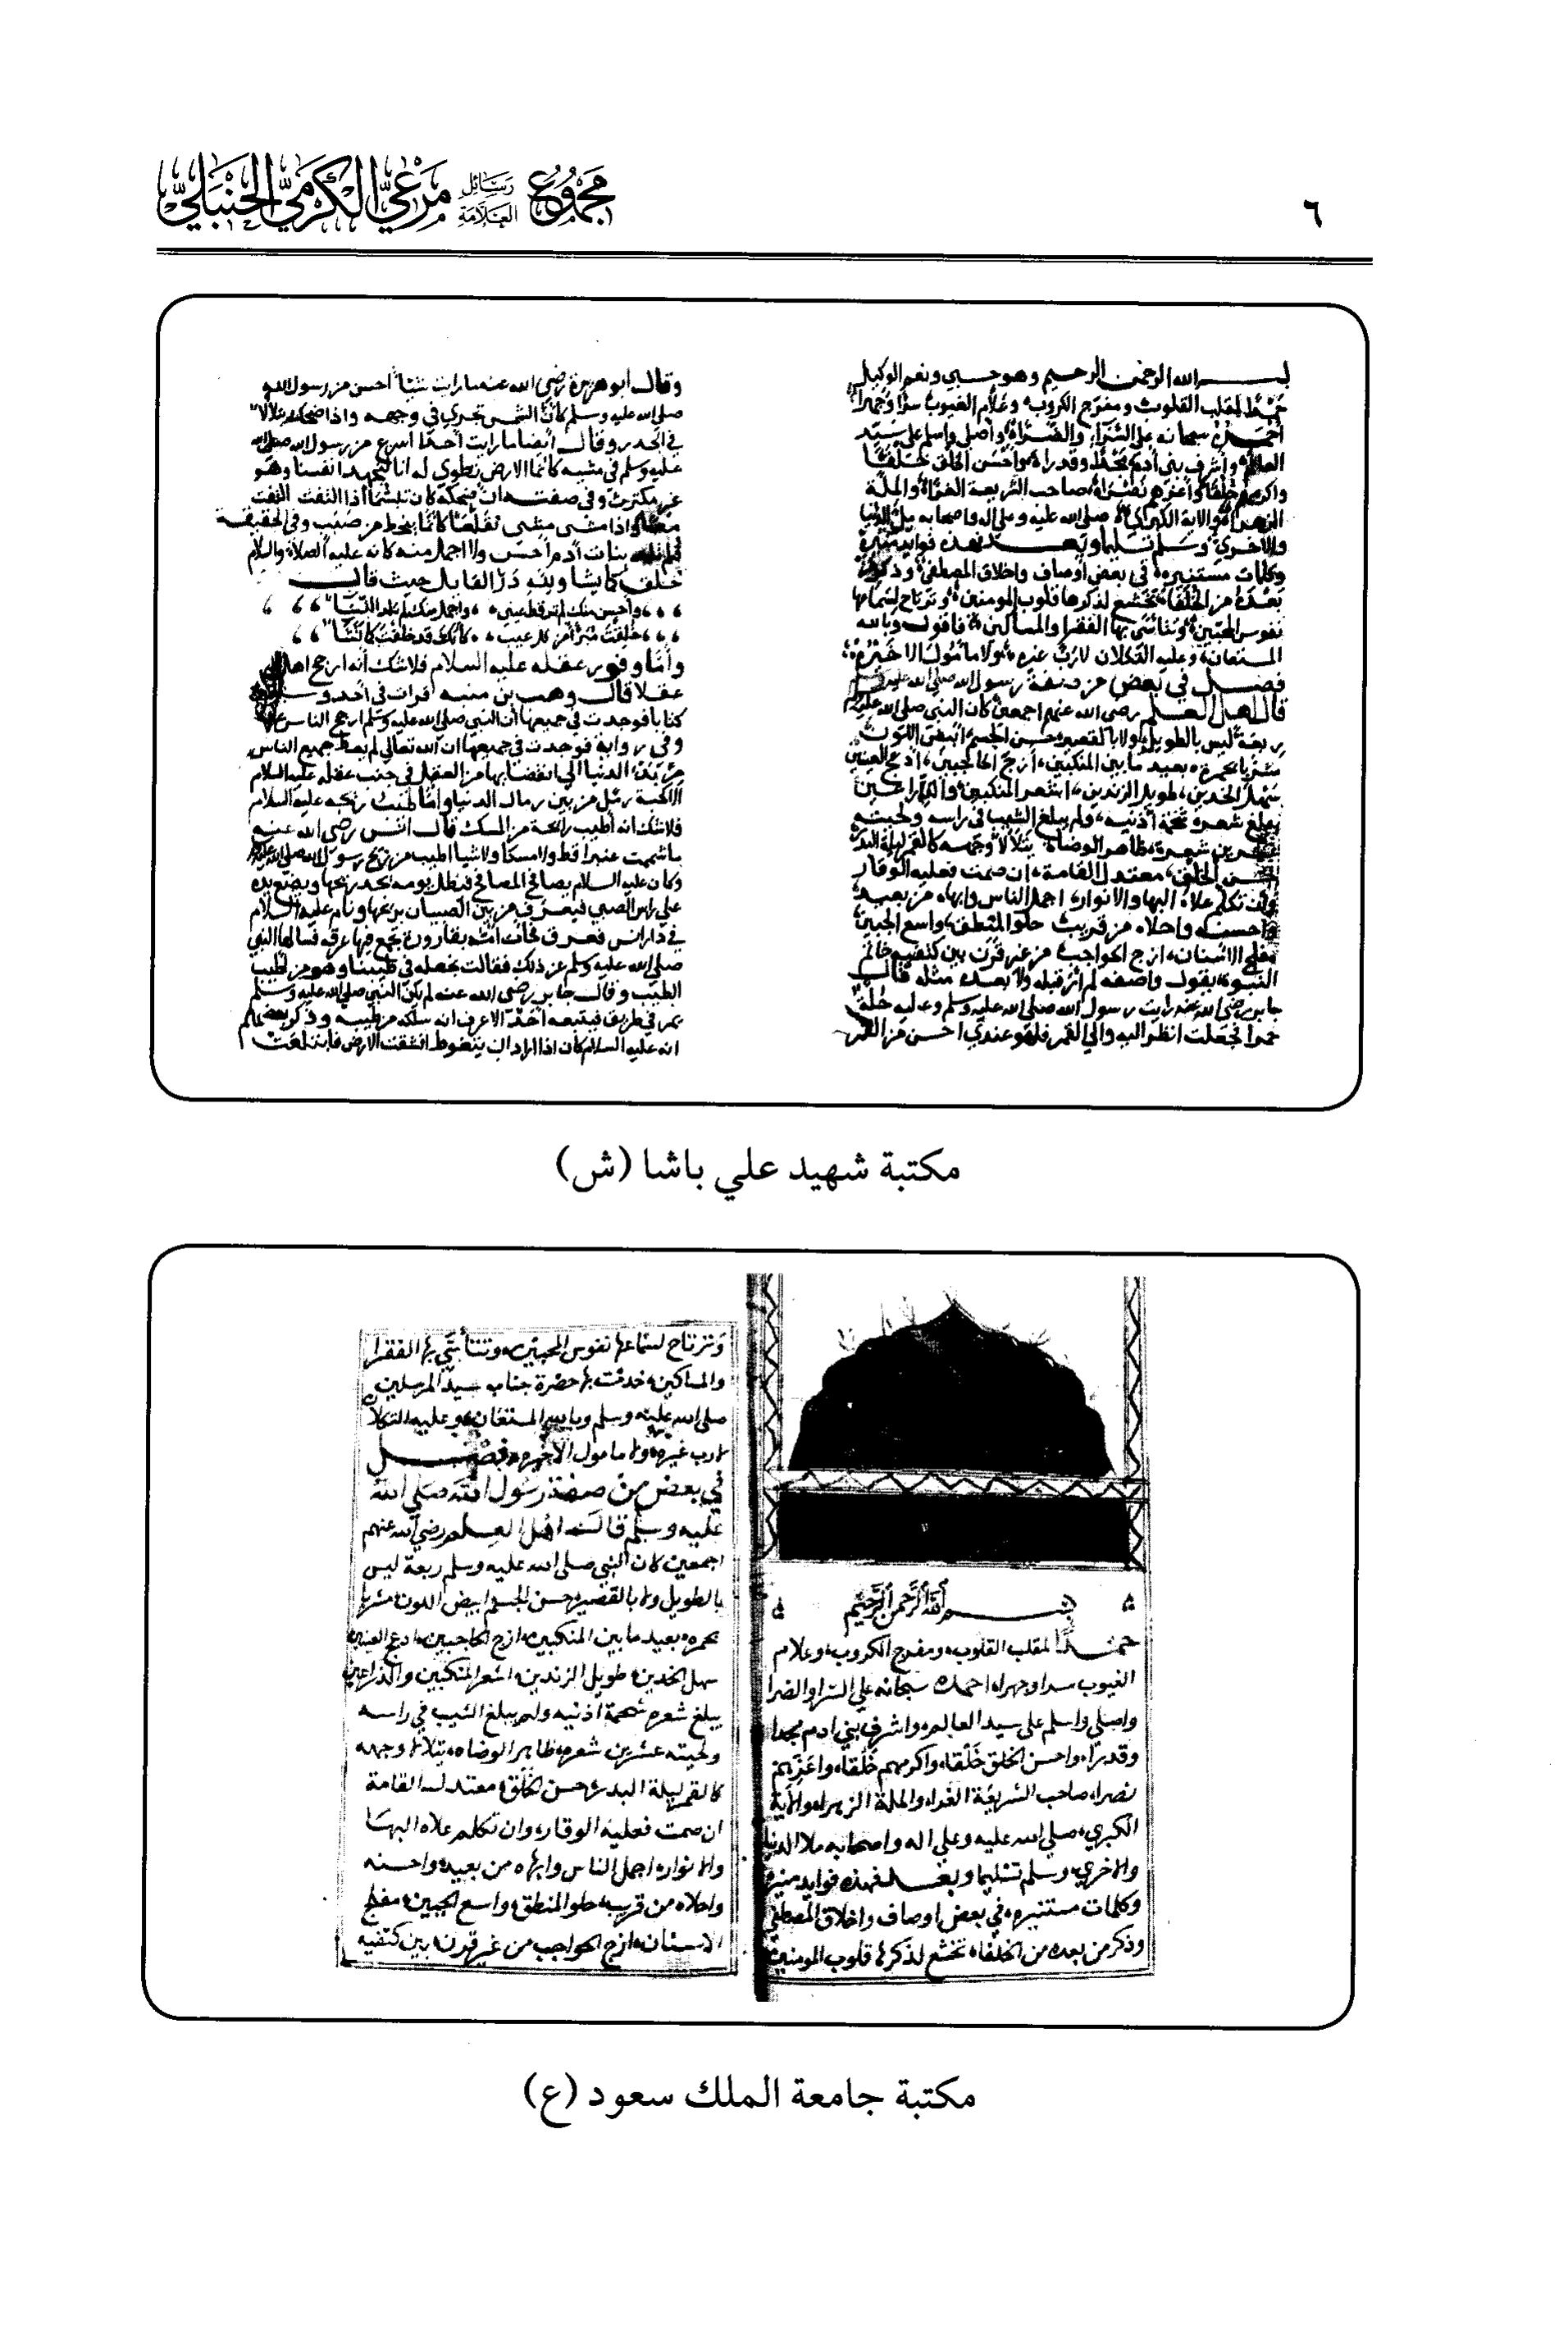 ٦
مجموع رسائل العلامة مرعي الكرمي الحنبلي
بسم الله الرحمن الرحيم وهو حسبي ونعم الوكيل
حمدا لمقلب القلوب ومفرج الكروب وعلام الغيوب سرا وجهرا
أحمده سبحانه على السراء والضراء وأصلي وأسلم على سيد
العالم وأشرف بني آدم مجدا وقدرا وأحسن الخلق خلقا
وأكرمهم خلقا وأعزهم نصرا صاحب الشريعة الغراء والملة
الزهراء والآية الكبرى صلى الله عليه وعلى اله واصحابه ملا الدنيا
والاخرى وسلم تسليما وبعد فهذه فوايد منيرة
وكلمات مستنيره في بعض أوصاف واخلاق المصطفى وذكر
بعده من الخلفا تخشع لذكرها قلوب المومنين وترتاح لسماعها
نفوس المحبين وتتأسى بها الفقرا والمساكين فاقول وبالله
المستعان وعليه التكلان لا رب غيره ولا مأمول الا خيره
فصل في بعض من صفة رسول الله صلى الله عليه وسلم
قال اهل العلم رضى الله عنهم اجمعين كان النبي صلى الله عليه
ربعة ليس بالطويل ولا بالقصير حسن الجسم أبيض اللون
مشربا بحمره بعيد ما بين المنكبين أزج الحاجبين أدعج العينين
سهل الخدين طويل الزندين اشعر المنكبين والذراعين
يبلغ شعره شحمة أذنيه ولم يبلغ الشيب في راسه ولحيته
عشرين شعرة ظاهر الوضاة يتلألأ وجهه كالقمر ليلة البدر
حسن الخلق معتدل القامة ان صمت فعليه الوقار
وان تكلم علاه البها والانوار اجمل الناس وابهاه من بعيد
واحسنه واحلاه من قريب حلو المنطق واسع الجبين
مفلج الاسنان ازج الحواجب من غير قرن بين كتفيه خاتم
النبوة يقول واصفه لم أر قبله ولا بعده مثله قال
جابر رضي الله عنه رايت رسول الله صلى الله عليه وسلم وعليه حلة
حمرا فجعلت انظر اليه والي القمر فلهو عندي احسن من القمر
وقال أبو هريرة رضي الله عنه ما رايت شيئا أحسن من رسول الله
صلى الله عليه وسلم كأن الشمس تجري في وجهه واذا ضحك يتلألأ
في الجدر وقال أيضا ما رايت أحدا أسرع من رسول الله صلى الله
عليه وسلم في مشيه كأنما الارض تطوى له انا لنجهد انفسنا وهو
غير مكترث وفي صفته ان ضحكه كان تبسما اذا التفت التفت
معا واذا مشى مشى تقلعا كأنما ينحط من صبب وفي الحقيقة
بنات أدم أحسن ولا اجمل منه كانه عليه الصلاة والسلام
خلق كما يشا ولله در القايل حيث قال
وأحسن منك لم تر قط عيني واجمل منك لم تلد النسا
خلقت مبرأ من كل عيب كأنك قد خلقت كما تشا
وأما وفور عقله عليه السلام فلا شك أنه ارجح
عقلا قال وهب بن منبه قرات في أحد وسبعين
كتابا فوجدت في جميعها أن النبي صلى الله عليه وسلم ارجح الناس
وفي رواية فوجدت في جميعها ان الله تعالى لم يعط جميع الناس
من بدء الدنيا الى انقضايها من العقل في جنب عقله عليه السلام
الا كحبة رمل من بين رمال الدنيا واما طيب ريحه عليه السلام
فلا شك انه أطيب رائحة من المسك قال انس رضى الله عنه
ما شممت عنبرا قط ولا مسكا ولا شيا اطيب من ريح رسول الله صلى الله عليه
وكان عليه السلام يصافح المصافح فيظل يومه يجد ريحها ويضع يده
على راس الصبي فيعرف من بين الصبيان بريحها ونام عليه السلام
في دار انس فعرق فجات امه بقارورة تجمع فيها عرقه فسالها النبي
صلى الله عليه وسلم عن ذلك فقالت نجعله في طيبنا وهو من اطيب
الطيب وقال جابر رضى الله عنه لم يكن النبي صلى الله عليه وسلم
يمر في طريق فيتبعه أحد الا عرف انه سلكه من طيبه وذكر بعضهم
انه عليه السلام كان اذا اراد ان يتغوط انشقت الارض فابتلعت
مكتبة شهيد علي باشا (ش)
بسم الله الرحمن الرحيم
حمدا لمقلب القلوب ومفرج الكروب وعلام
الغيوب سرا وجهرا احمده سبحانه علي السرا والضرا
واصلي واسلم على سيد العالم واشرف بني ادم مجدا
وقدرا واحسن الخلق خلقا واكرمهم خلقا واعزهم
نصرا صاحب الشريعة الغرا والملة الزهرا والاية
الكبري صلي الله عليه وعلى اله واصحابه ملا الدنيا
والاخري وسلم تسليما وبعد فهذه فوايد منيره
وكلمات مستنيره في بعض اوصاف واخلاق المصطفي
وذكر من بعده من الخلفا تخشع لذكرها قلوب المومنين
وترتاح لسماعها نفوس المحبين وتتأسي بها الفقرا
والمساكين خدمت بها حضرة جناب سيد المرسلين
صلي الله عليه وسلم وبالله المستعان وعليه التكلان
لا رب غيره ولا مامول الا خيره فصل
في بعض من صفة رسول الله صلى الله
عليه وسلم قالت اهل العلم رضي الله عنهم
اجمعين كان النبي صلى الله عليه وسلم ربعة ليس
بالطويل ولا بالقصير حسن الجسم ابيض اللون مشربا
بحمره بعيد ما بين المنكبين ازج الحاجبين ادعج العينين
سهل الخدين طويل الزندين اشعر المنكبين والذراعين
يبلغ شعره شحمة اذنيه ولم يبلغ الشيب في راسه
ولحيته عشرين شعره ظاهر الوضاه يتلالا وجهه
كالقمر ليلة البدر حسن الخلق معتدل القامة
ان صمت فعليه الوقار وان تكلم علاه البها
والانوار اجمل الناس وابهاه من بعيد واحسنه
واحلاه من قريب حلو المنطق واسع الجبين مفلج
الاسنان ازج الحواجب من غير قرن بين كتفيه
مكتبة جامعة الملك سعود (ع)